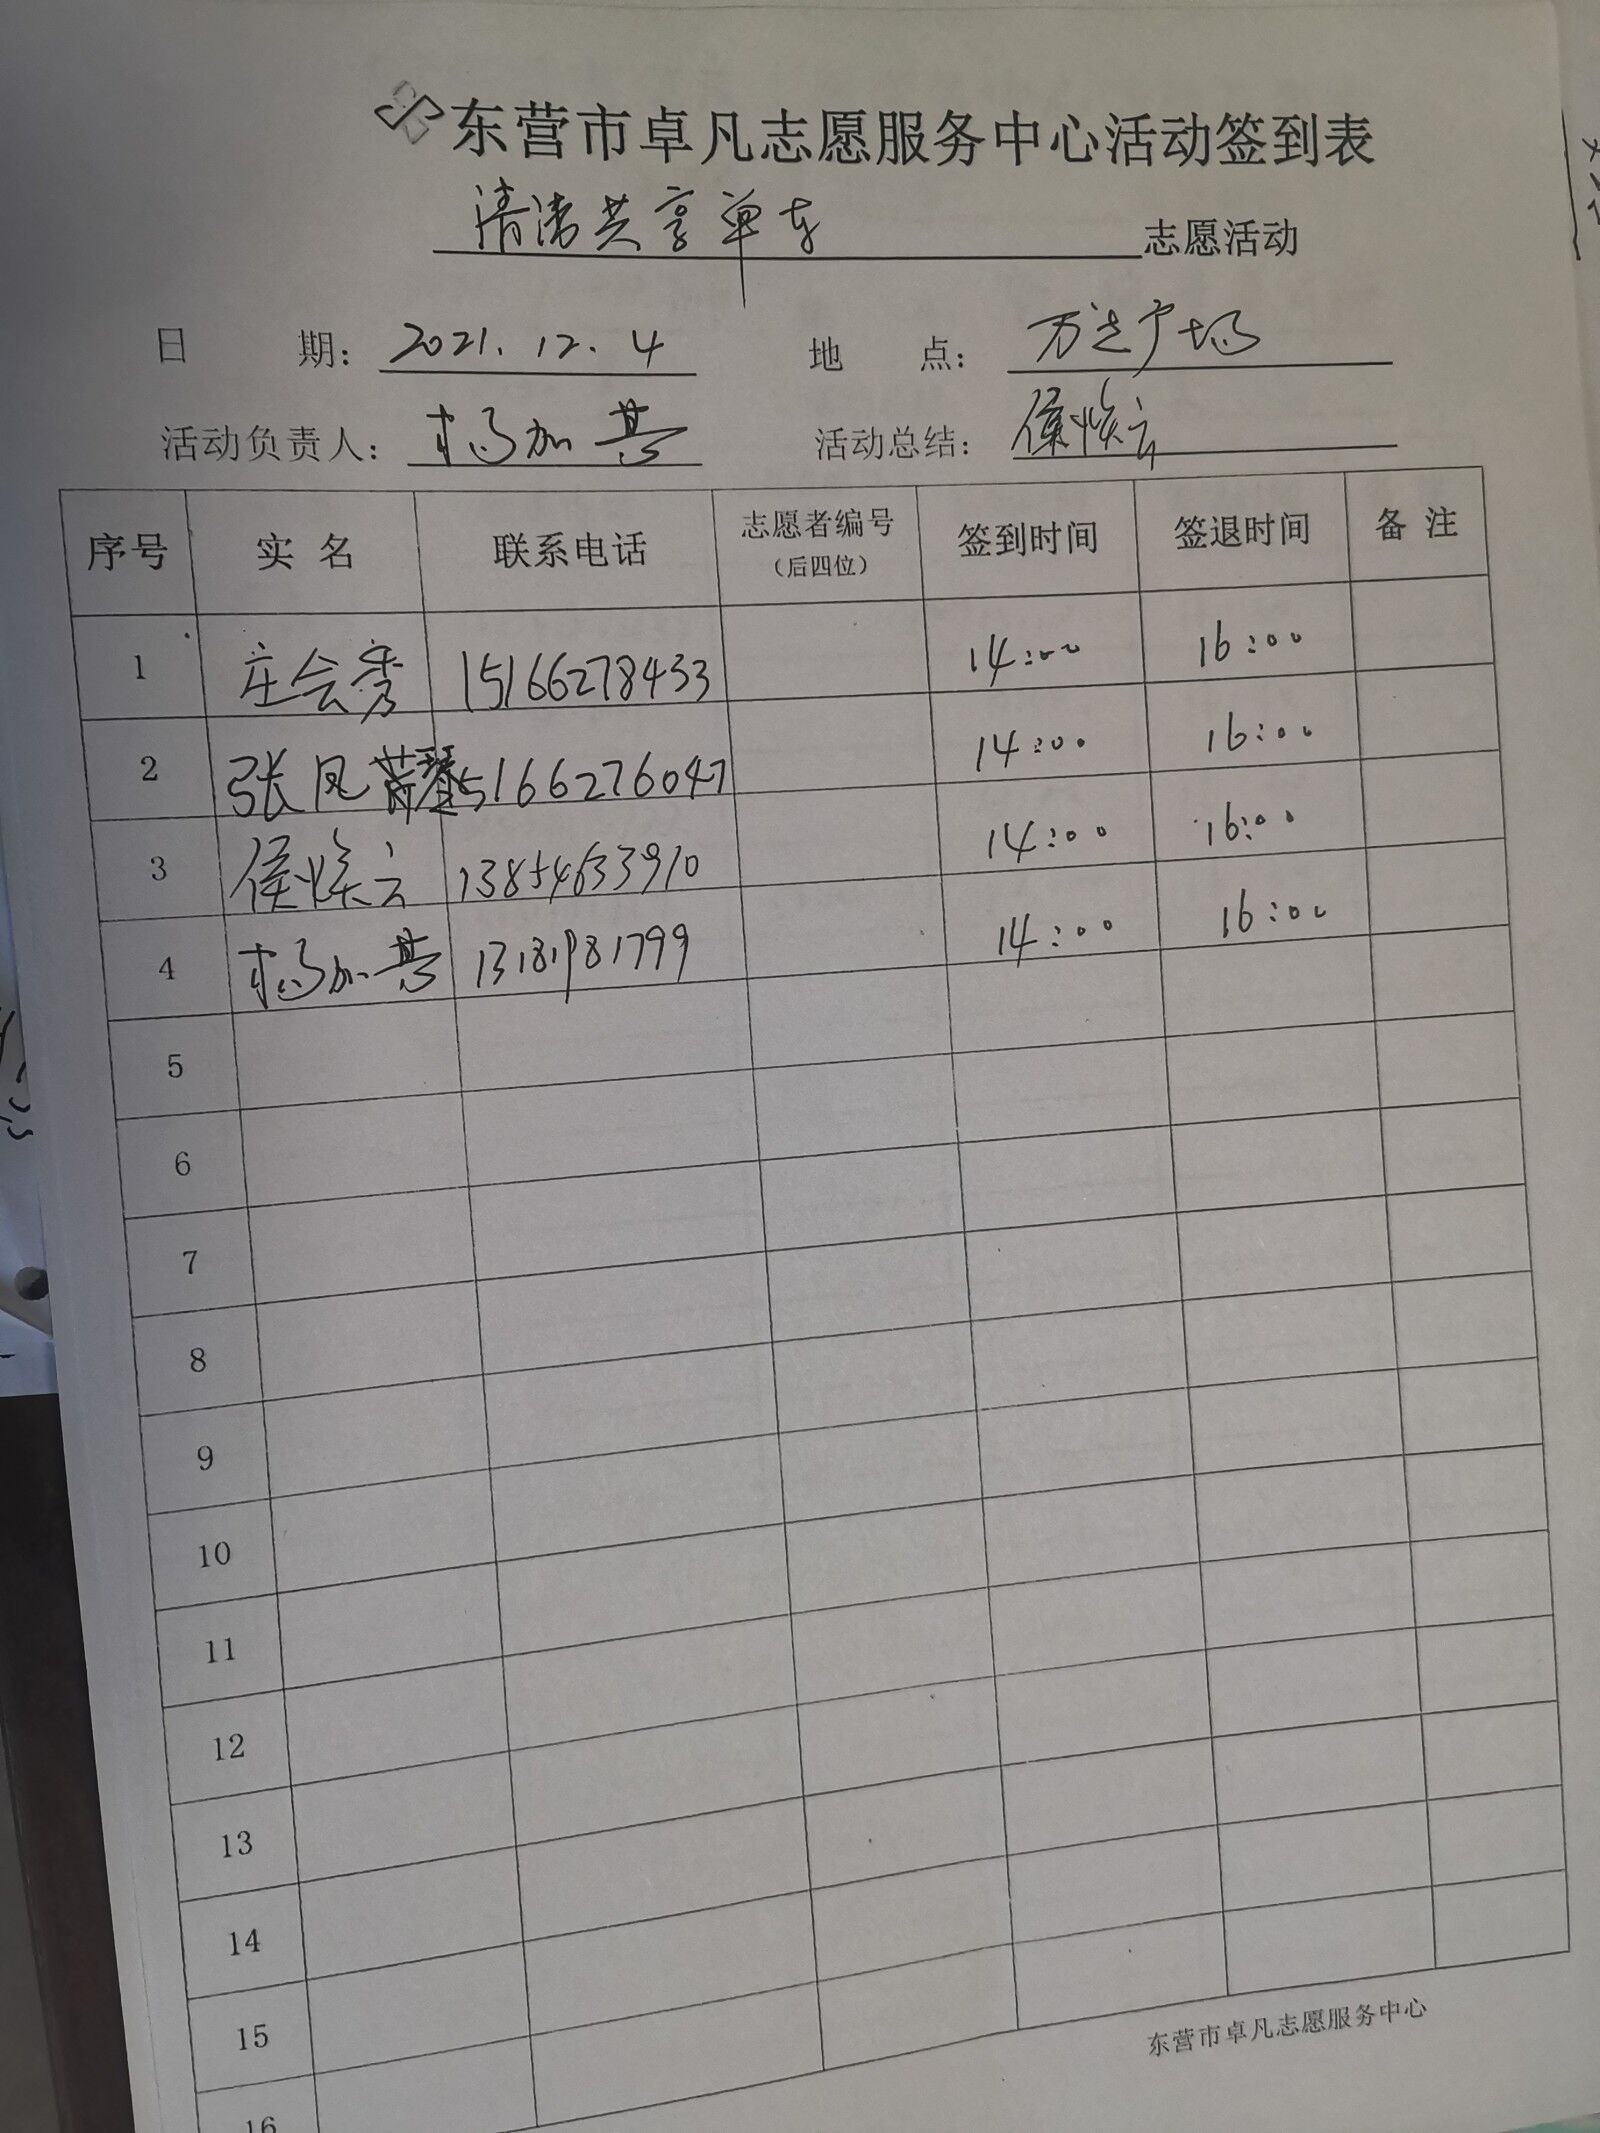 东营市卓凡志愿服务中心活动签到表
清洁共享单车 志愿活动
日 期: 2021.12.4 地 点: 万达广场
活动负责人: 杨加芸 活动总结: 侯焕云
序号 实名 联系电话 志愿者编号(后四位) 签到时间 签退时间 备注
1 庄会秀 15166278433 14:00 16:00
2 张凤琴 15166276047 14:00 16:00
3 侯焕云 13854633910 14:00 16:00
4 杨加芸 13181981799 14:00 16:00
5
6
7
8
9
10
11
12
13
14
15
16
东营市卓凡志愿服务中心